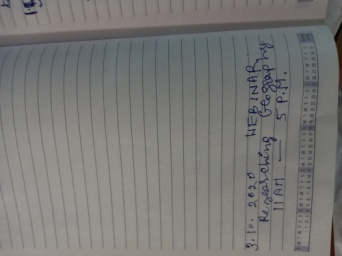 3.10.2020 WEBINAR
Researching Geography
11 AM — 5 P.M.